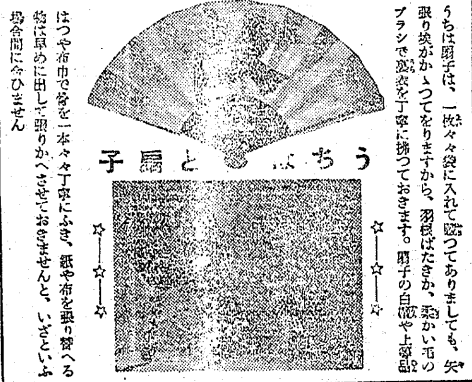 うちは扇子は、一枚々々袋に入れて つてありましても、矢
張り埃がかゝつてをりますから、羽根ばたきか、柔かい毛の
ブラシで裏表を丁寧に拂つておきます。扇子の白 や上等品
うちはと扇子
はつや布巾で骨を一本々々丁寧にふき、紙や布を張り替へる
物は早めに出して張りかへさせておきませんと、いざといふ
場合間に合ひません